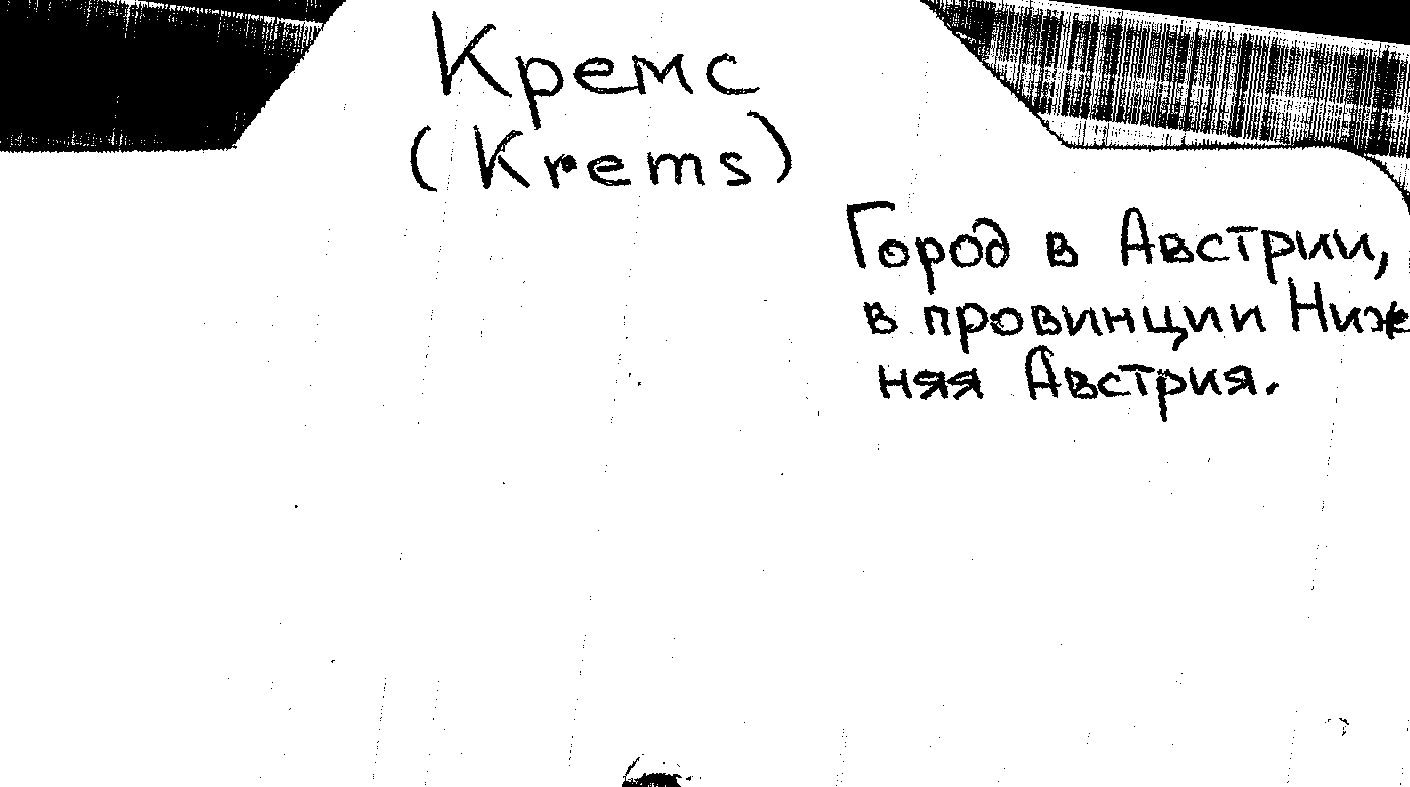 Кремс
(Krems)
Город в Австрии,
в провинции Ниж
няя Австрия.